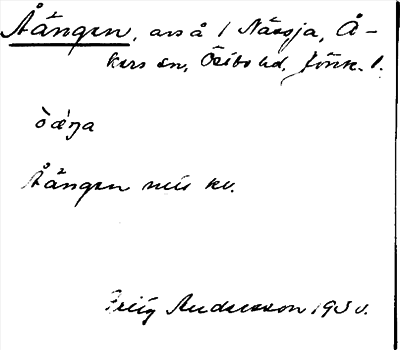 Åängen, avs å 1 Nässja, Å-
kers sn, Östbo hd, Jönk. l.
ò ǽŋa
Åängen mis kv.
Andersson 1930.